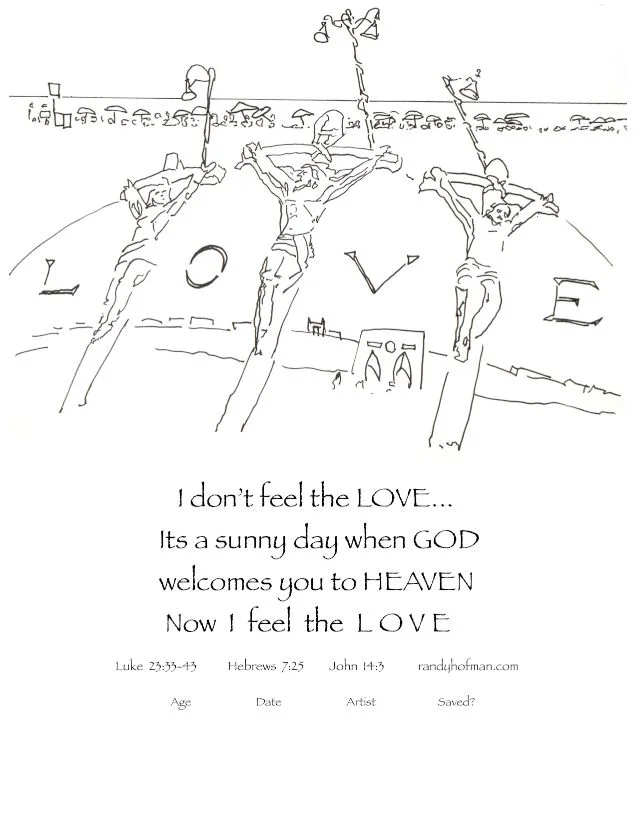 L O V E
I don't feel the LOVE...
Its a sunny day when GOD
welcomes you to HEAVEN
Now I feel the L O V E
Luke 23:33-43 Hebrews 7:25 John 14:3 randyhofman.com
Age Date Artist Saved?